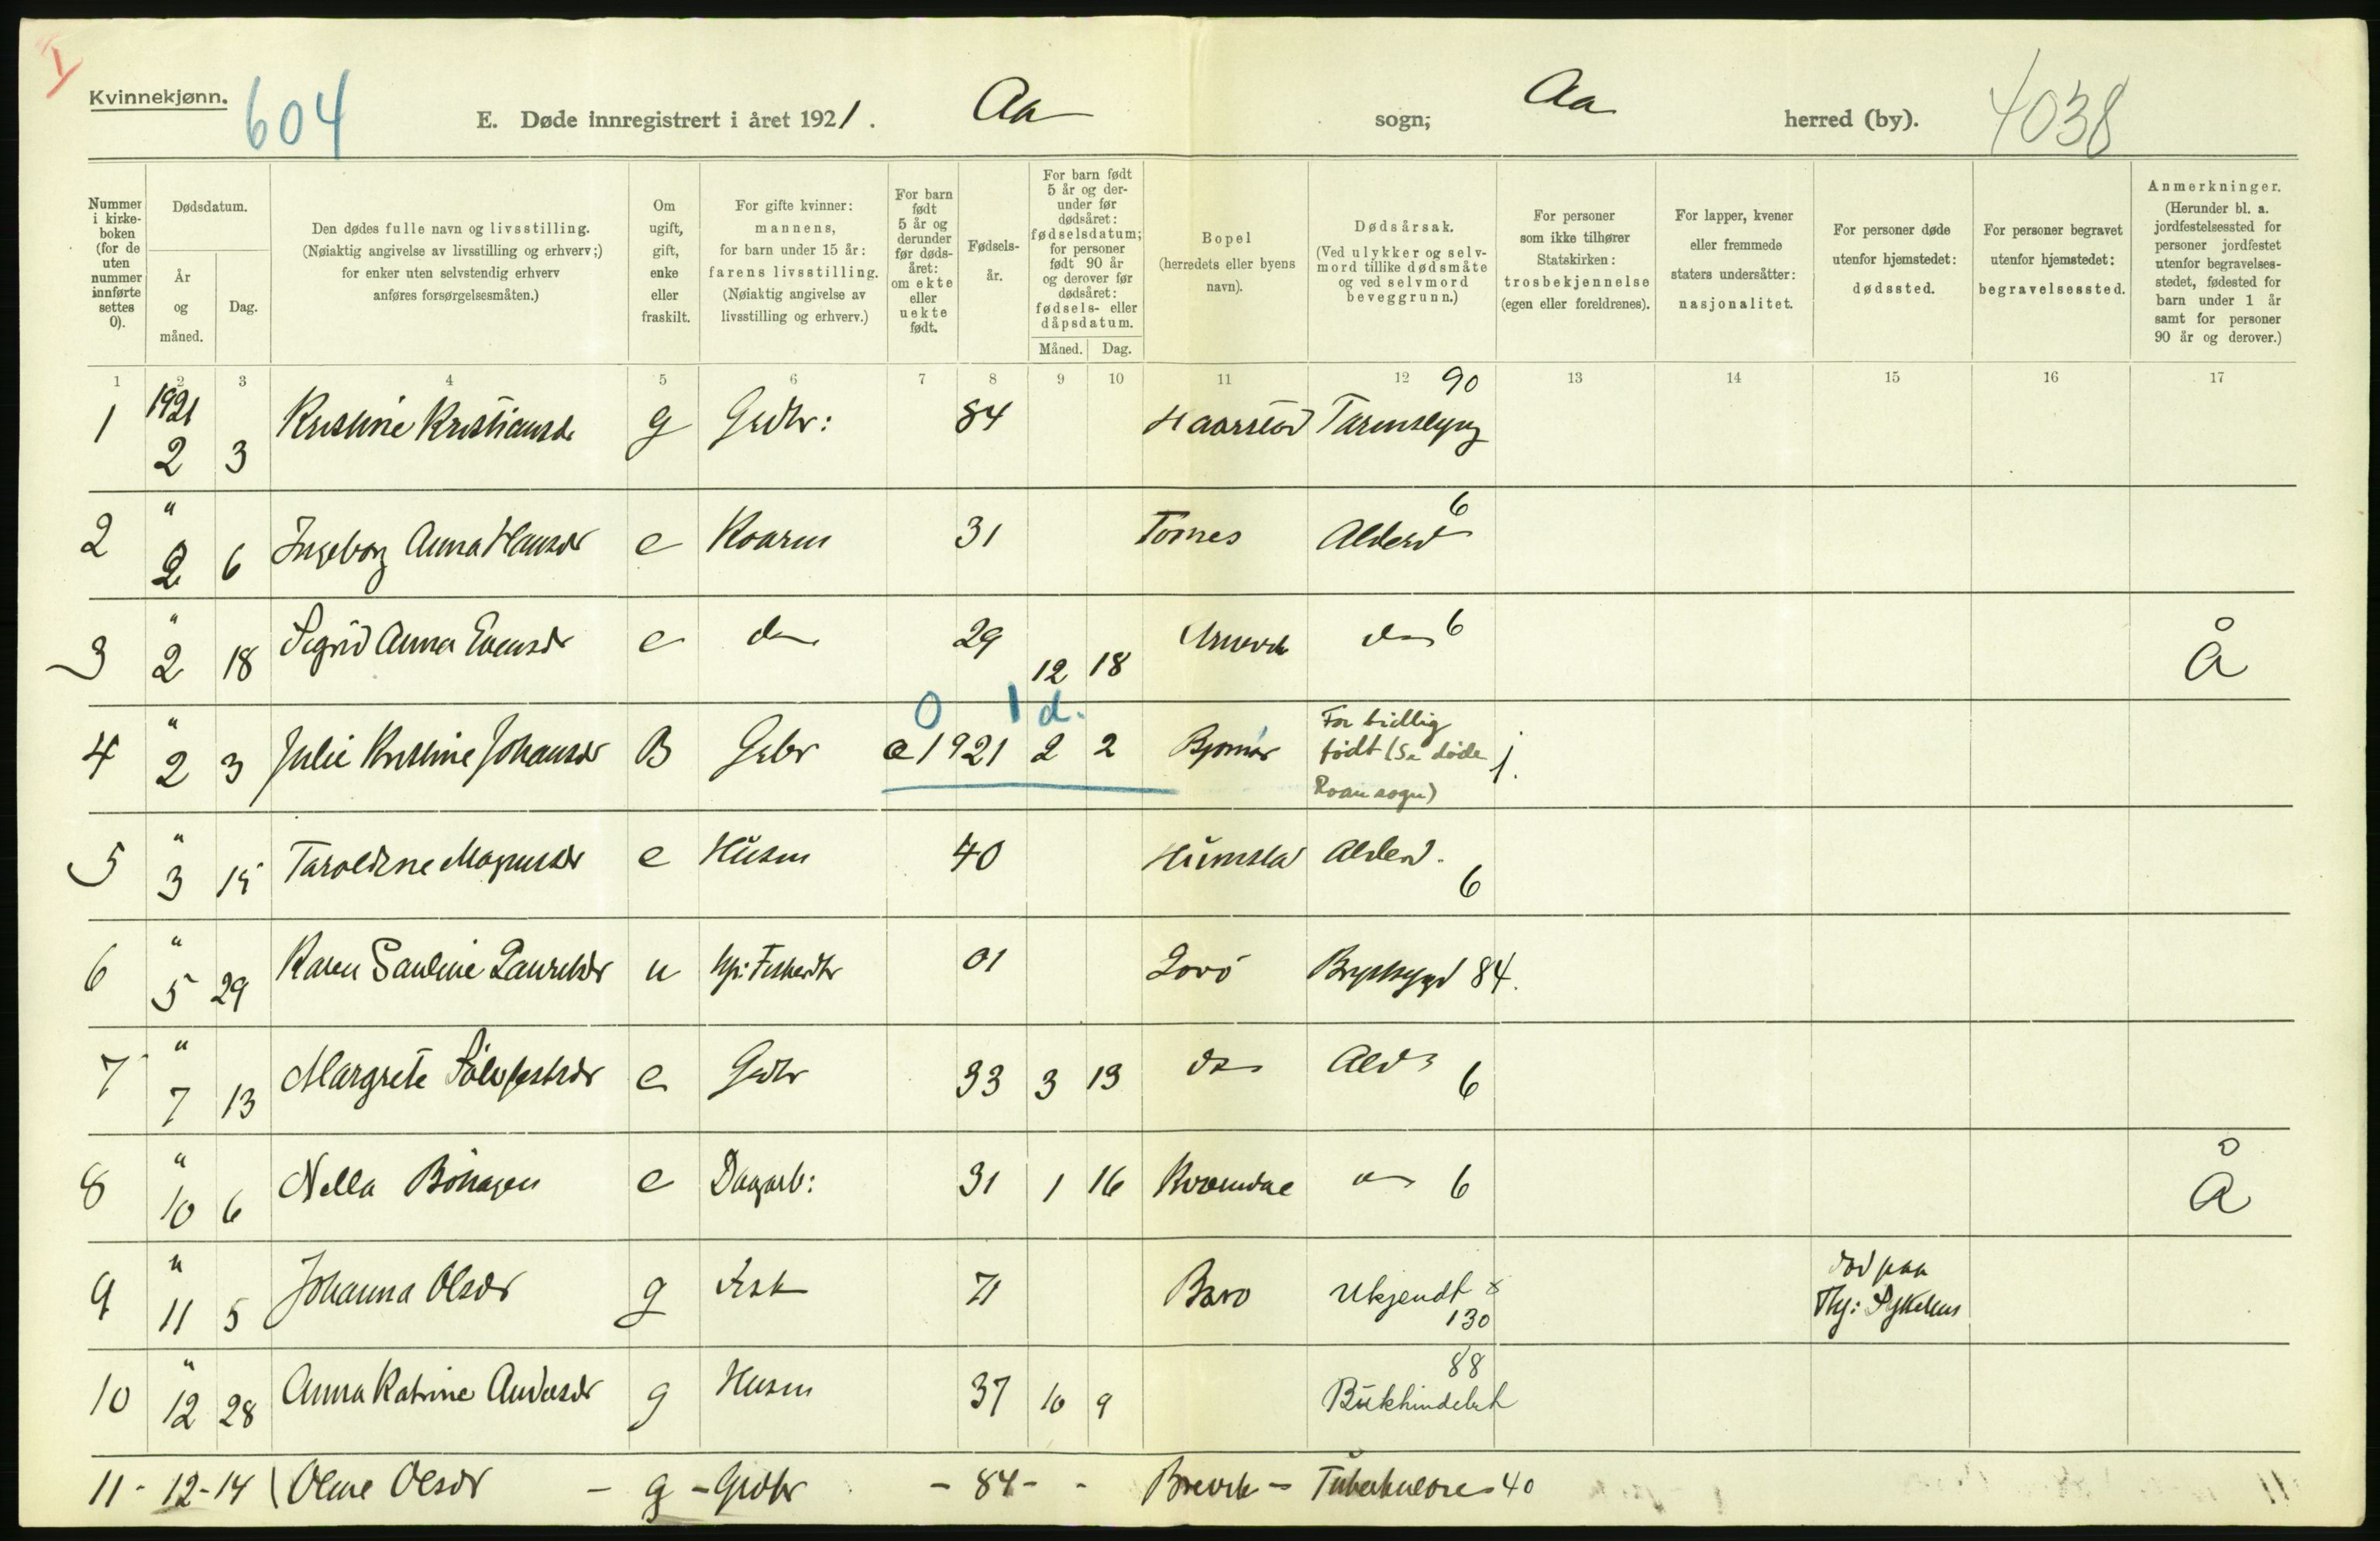 Kvinnekjønn.
604
E. Døde innregistrert i året 1921. Aa sogn; Aa herred (by). 4038
Nummer i kirke-boken (for de uten nummer innførte settes 0).
Dødsdatum.
År og måned.
Dag.
Den dødes fulle navn og livsstilling.
(Nøiaktig angivelse av livsstilling og erhverv;)
for enker uten selvstendig erhverv
anføres forsørgelsesmåten.)
Om ugift, gift, enke eller fraskilt.
For gifte kvinner: mannens,
for barn under 15 år:
farens livsstilling.
(Nøiaktig angivelse av
livsstilling og erhverv.)
For barn født 5 år og derunder før døds-året: om ekte eller uekte født.
Fødsels-år.
For barn født 5 år og der-under før dødsåret: fødselsdatum; for personer født 90 år og derover før dødsåret: fødsels- eller dåpsdatum.
Måned. Dag.
Bopel
(herredets eller byens navn).
Dødsårsak.
(Ved ulykker og selv-mord tillike dødsmåte og ved selvmord beveggrunn.)
For personer som ikke tilhører Statskirken: trosbekjennelse (egen eller foreldrenes).
For lapper, kvener eller fremmede staters undersåtter: nasjonalitet.
For personer døde utenfor hjemstedet: dødssted.
For personer begravet utenfor hjemstedet: begravelsessted.
Anmerkninger.
(Herunder bl. a. jordfestelsessted for personer jordfestet utenfor begravelses-stedet, fødested for barn under 1 år samt for personer 90 år og derover.)
1 2 3 4 5 6 7 8 9 10 11 12 13 14 15 16 17
1 1921 2 3 Kristine Kristiansdr g Grdbr: 84 Haarstad Tarmslyng 90
2 " 2 6 Ingeborg Anna Hansdr e Kaarm 31 Tornes Alderd 6
3 " 2 18 Sigrid Anna Evensdr e do 29 12 18 do 6 Å
0 1 d.
4 " 2 3 Julie Kristine Johansdr B Grbr e 1921 2 2 Bjørnør For tidlig
født (Se døde j.
Roan sogn)
5 " 3 15 Magnusdr e Husm 40 Humstad Alderd. 6
6 " 5 29 Karen Pauline Lauritsdr u 01 Lovö Brystsygd 84.
7 " 7 13 Margrete Sølvfestsdr e Grdbr 33 3 13 do Ald 6
8 " 10 6 Nella Bönagen e Dagarb: 31 1 16 6 Å
9 " 11 5 Johanna Olsdr g Fisk 71 Ukjendt 130 död paa
Sykehus
10 " 12 28 Anna Katrine Andersdr g Husm 37 10 9 88 Bukhindebet
11 - 12 - 14 Oline Olsdr - g - Grdbr - 84 - - Brevik - Tuberkulose 40